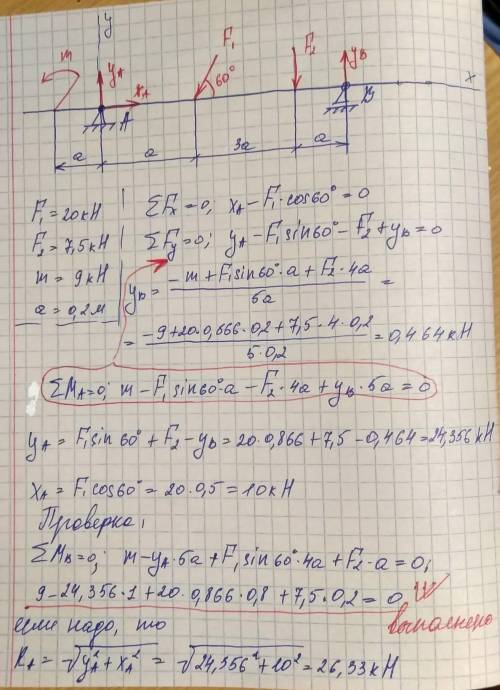 y
m
yA
xA
F₁
60°
F₂
yB
x
A
B
a
a
3a
a
F₁ = 20кН
F₂ = 7,5кН
m = 9кН
a = 0,2м
ΣFx = 0; xA - F₁·cos60° = 0
ΣFy = 0; yA - F₁sin60° - F₂ + yB = 0
yB = (-m + F₁sin60°·a + F₂·4a) / 5a =
= (-9 + 20·0,866·0,2 + 7,5·4·0,2) / (5·0,2) = 0,464кН
ΣMA = 0; m - F₁sin60°·a - F₂·4a + yB·5a = 0
yA = F₁sin60° + F₂ - yB = 20·0,866 + 7,5 - 0,464 = 24,356кН
xA = F₁cos60° = 20·0,5 = 10кН
Проверка:
ΣMB = 0; m - yA·5a + F₁sin60°·4a + F₂·a = 0;
9 - 24,356·1 + 20·0,866·0,8 + 7,5·0,2 = 0
выполнено
если надо, то
RA = √(yA² + xA²) = √(24,356² + 10²) = 26,33кН